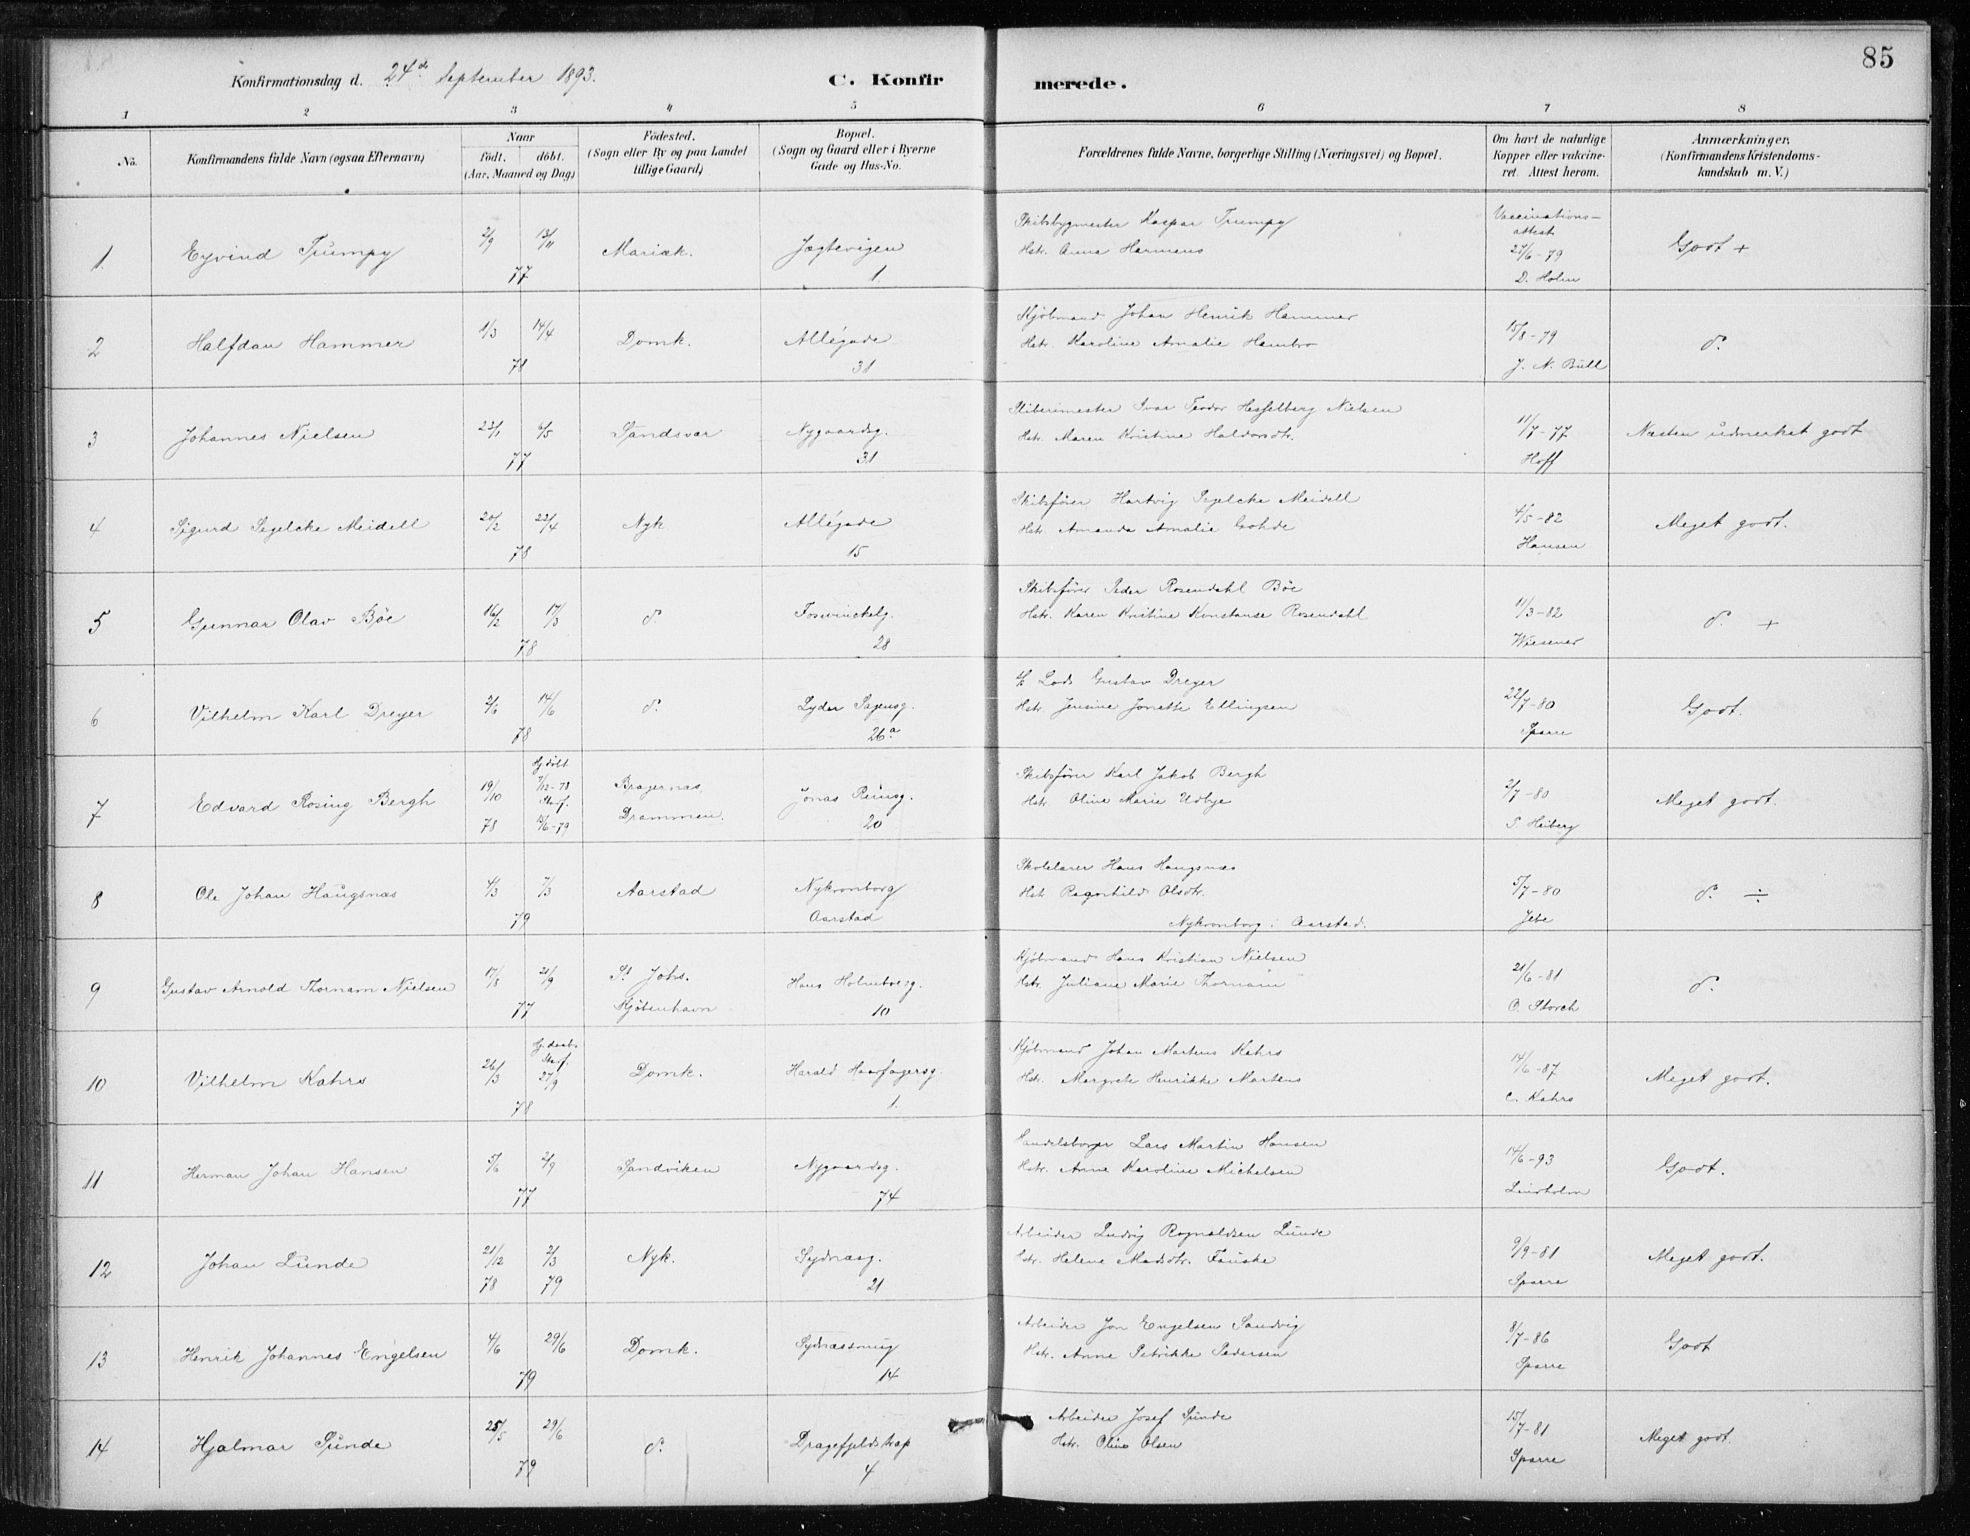 85
Konfirmationsdag d. 24de September 1893.
C. Konfirmerede.
1 2 3 4 5 6 7 8
No. Konfirmandens fulde Navn (ogsaa Efternavn)
Naar födt. döbt. (Aar, Maaned og Dag)
Födested. (Sogn eller By og paa Landet tillige Gaard)
Bopæl. (Sogn og Gaard eller i Byerne Gade og Hus-No.
Forældrenes fulde Navne, borgerlige Stilling (Næringsvei) og Bopæl.
Om havt de naturlige Kopper eller vakcineret. Attest herom.
Anmærkninger, (Konfirmandens Kristendomskundskab m. V.)
1. Eyvind Trumpy 2/9 13/11 77 Mariæk. Jægtevigen 1.
Skibsbygmester Kaspar Trumpy
Hstr. Anna Harmens
Vaccinationsattest 27/6-79 D. Holm
Godt +
2 Halfdan Hammer 1/3 14/4 78 Domk. Allégade 31
Kjöbmand Johan Henrik Hammer
Hstr. Karoline Amalie Hambro
15/8-79 J. N. Bull
d.
3 Johannes Nielsen 23/1 6/5 77 Sandsvær Nygaardsg. 31
Sliberimester Ivar Teodor Hesselberg Nielsen
Hstr. Maren Kristine Haldorsdtr.
11/7-77 Hoff
Næsten udmerket godt
4 Sigurd Segelcke Meidell 20/2 22/4 78 Nyk Allégade 15
Skibsförer Hartvig Segelcke Meidell
Hstr. Amanda Amalie Gohde
4/5-82 Hansen
Meget godt.
5 Gunnar Olav Böe 16/2 17/3 78 d. Fosswinckelg. 28
Skibsförer Peder Rosendahl Böe
Hstr. Karen Kristine Konstanse Rosendahl
11/3-82 Wiesener
d. +
6 Vilhelm Karl Dreyer 2/6 14/6 78 d. Lyder Sagensg. 26a
Lods Gustav Dreyer
Hstr. Jensine Jonette Ellingsen
22/7-80 Sparre
Godt.
7 Edvard Rosing Bergh 19/10 78 Hj.döbt 7/12-78 Stadf. 15/6-79 Bragernæs, Drammen. Jonas Reinsg. 20
Skibsförer Karl Jakob Bergh
Hstr. Oline Marie Udbye
2/7-80 S. Heiberg
Meget godt.
8 Ole Johan Haugsnæs 4/3 7/3 79 Aarstad Nykronborg Aarstad
Skolelærer Hans Haugsnæs
Hstr Ragnhild Olsdtr.
Nykronborg i Aarstad.
5/7-80 Jebe
d. ÷
9 Gustav Arnold Thornam Nielsen 17/8 21/9 77 St Johs. Kjöbenhavn Hans Holmboesg. 10
Kjöbmand Hans Kristian Nielsen
Hstr. Juliane Marie Thornam
21/6-81 O. Storch
d.
10 Vilhelm Kahrs 26/3 Hj.daab. Stadf. 27/9 78 Domk. Harald Haarfagersg. 1.
Kjöbmand Johan Martens Kahrs
Hstr. Margrete Henrikke Martens
14/6-87 C. Kahrs
Meget godt.
11 Herman Johan Hansen 5/6 2/9 77 Sandviken Nygaardsg. 74
Handelsborger Lars Martin Hansen
Hstr. Anne Karoline Michelsen
14/6-93 Lindholm
Godt.
12 Johan Lunde 21/12 78 2/3 79 Nyk. Sydnæsg. 21
Arbeider Ludvig Ragnaldsen Lunde
Hstr. Helene Madsdtr. Fauske
9/9-81 Sparre
Meget godt.
13 Henrik Johannes Engelsen 4/6 29/6 79 Domk. Sydnæssmug 14
Arbeider Jon Engelsen Sandvig
Hstr. Anne Petrikke Pedersen
8/7-86 Sparre
Godt
14 Hjalmar Sunde 25/5 29/6 79 d. Dragefjeldstrap 4
Arbeider Josef Sunde
Hstr. Oline Olsen
15/7-81 Sparre
Meget godt.